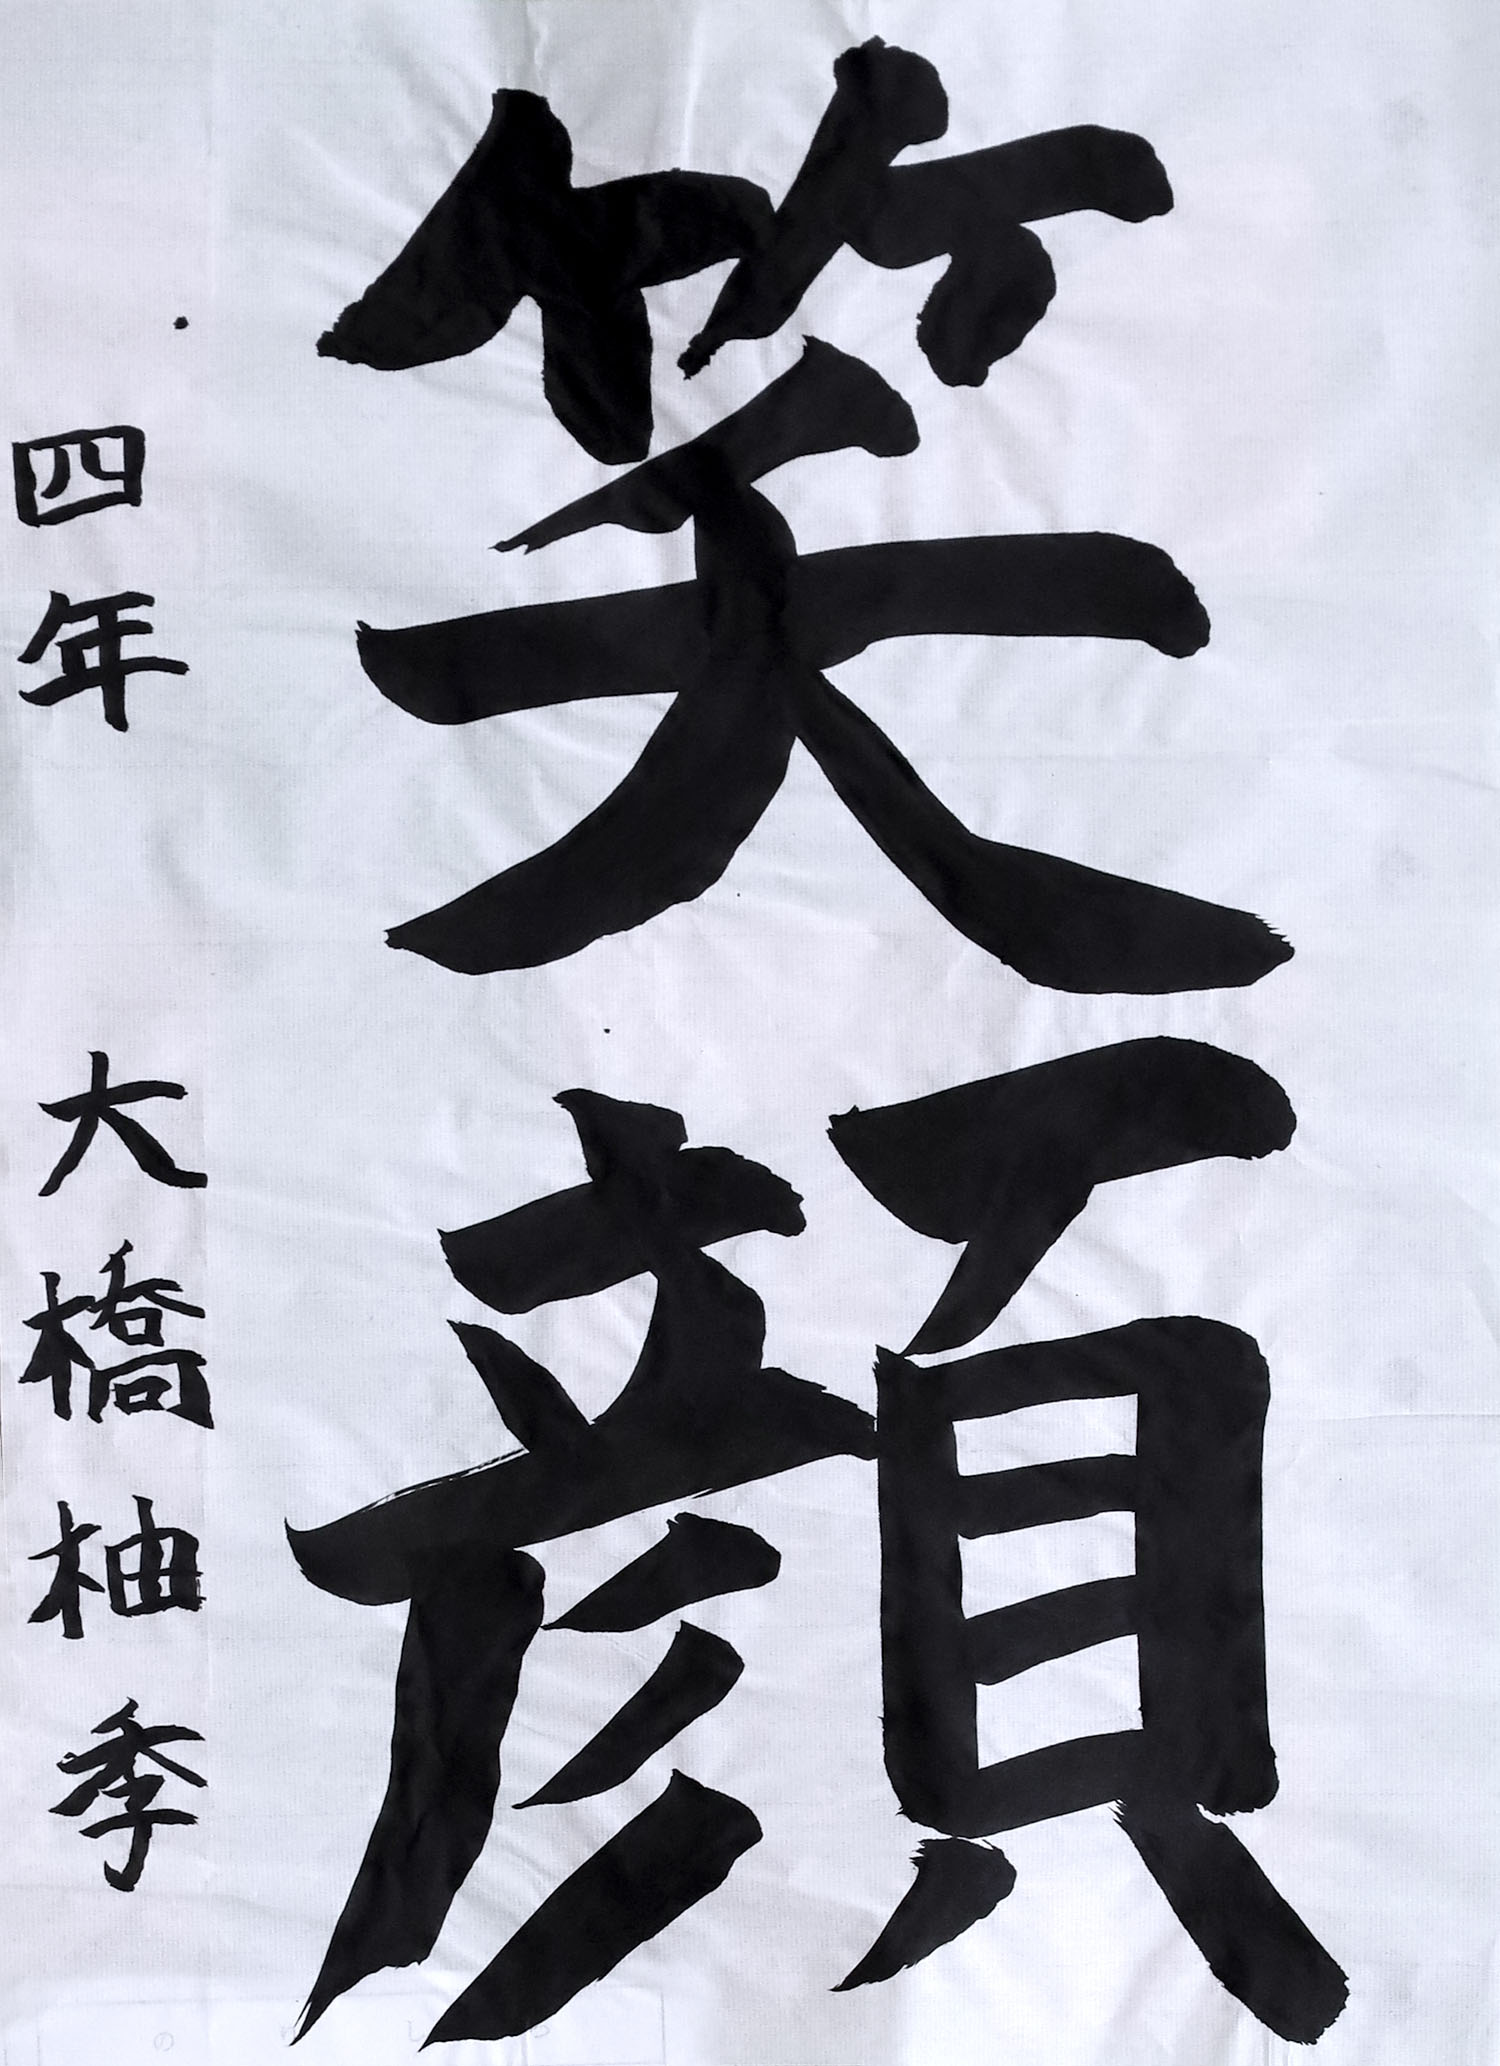 笑顔
四年 大橋柚季